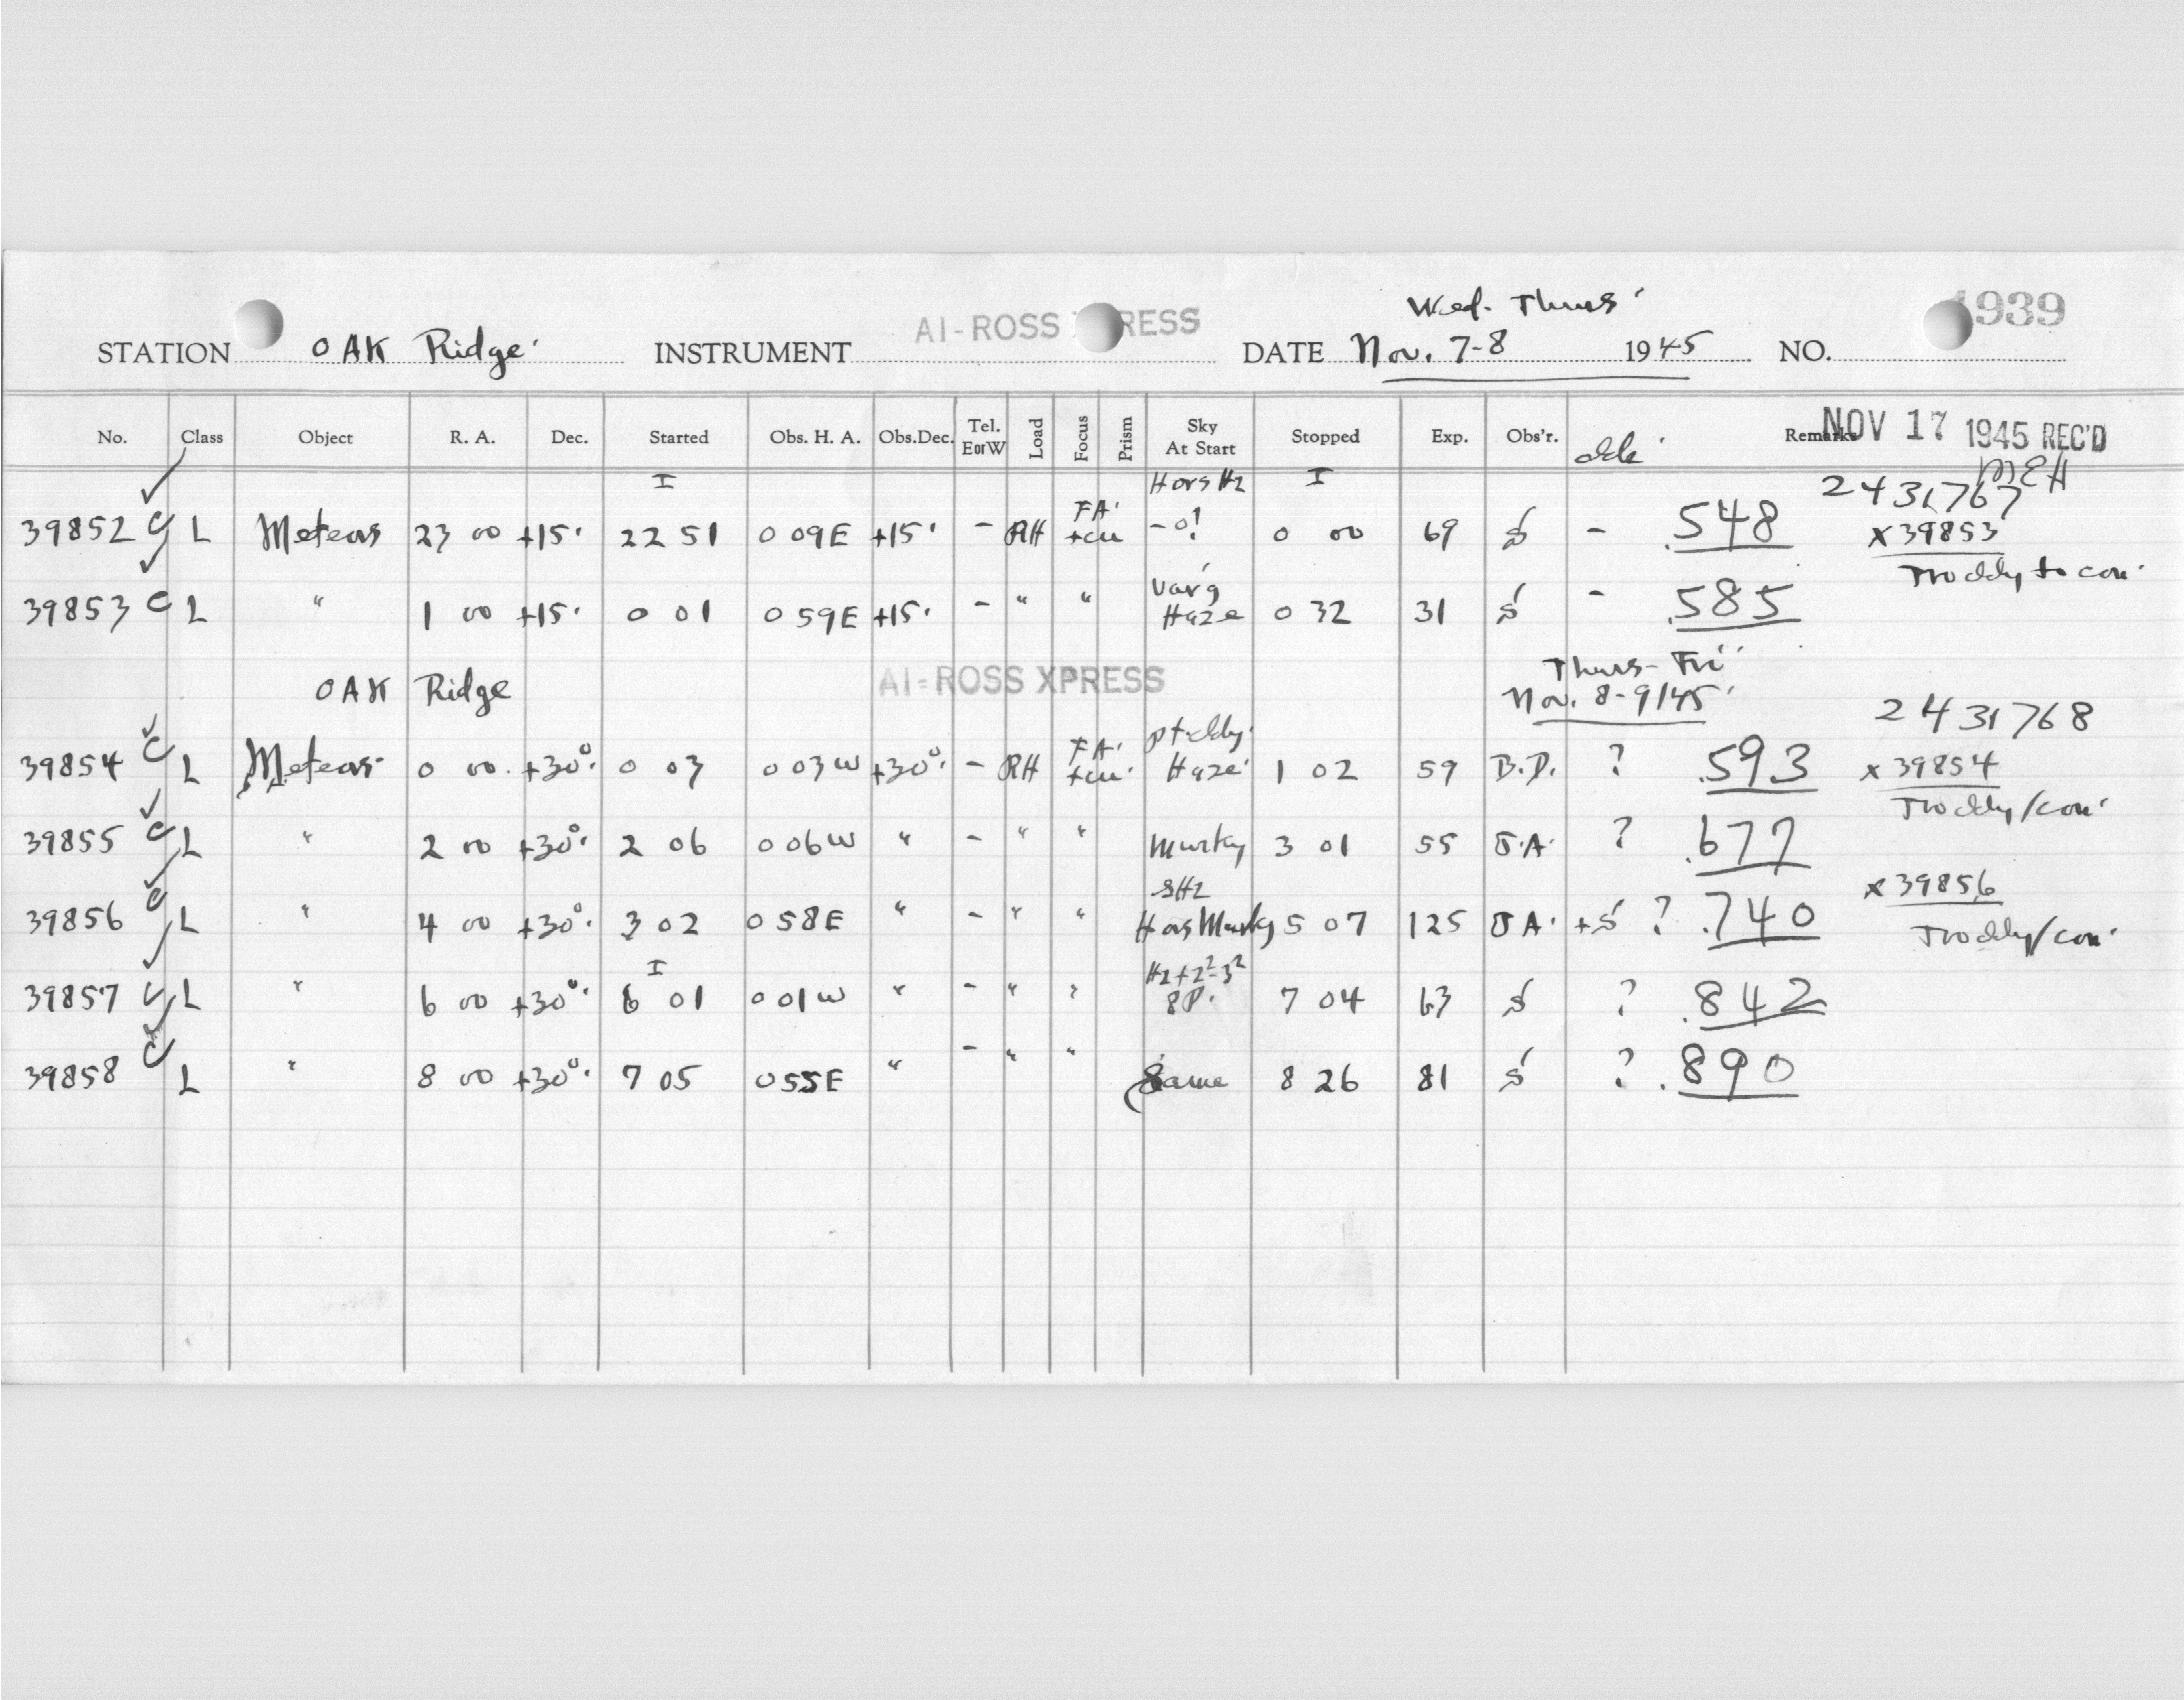 Wed. Thurs.
STATION OAK Ridge. INSTRUMENT AI-ROSS RESS DATE Nov. 7-8 1945 NO. 1939
No. Class Object R. A. Dec. Started Obs. H. A. Obs.Dec. Tel. E or W Load Focus Prism Sky At Start Stopped Exp. Obs'r. Remarks NOV 17 1945 REC'D
MEH
I Hors Hz I 2431767
39852 C L Meteors 23 00 +15. 22 51 0 09E +15. - RH FA. -0! 0 00 69 S - .548 X 39853
39853 C L " 1 00 +15. 0 01 0 59E +15. - " " Var'g Haze 0 32 31 S - .585
OAK Ridge AI-ROSS XPRESS Thurs-Fri. Nov. 8-9/45
2431768
39854 C L Meteors 0 00 +30°. 0 03 0 03W +30°. - RH FA. Haze 1 02 59 B.D. ? .593 X 39854
39855 C L " 2 00 +30°. 2 06 0 06W " - " " Murky 3 01 55 J.A. ? .677
39856 C L " 4 00 +30°. 3 02 0 58E " - " " SHz Hors Murky 5 07 125 J.A. +S ? .740 X 39856
I
39857 C L " 6 00 +30°. 6 01 0 01W " - " " Hz+2²-3² 8P. 7 04 63 S ? .842
39858 C L " 8 00 +30°. 7 05 0 55E " - " " Same 8 26 81 S ? .890